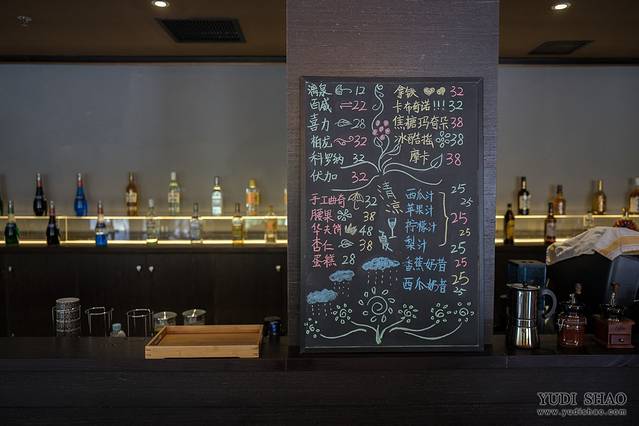 满泉 12
西威 22
喜力 28
柏龙 32
科罗纳 32
伏加 32
手工曲奇 32
腰果 38
华夫饼 48
杏仁 38
蛋糕 28
拿铁 32
卡布奇诺!!! 32
焦糖玛奇朵 38
冰酷摇 38
摩卡 38
清凉一夏
西瓜汁 25
苹果汁
25
柠檬汁
25
梨汁 25
香蕉奶昔 25
西瓜奶昔 25
YUDI SHAO
www.yudishao.com